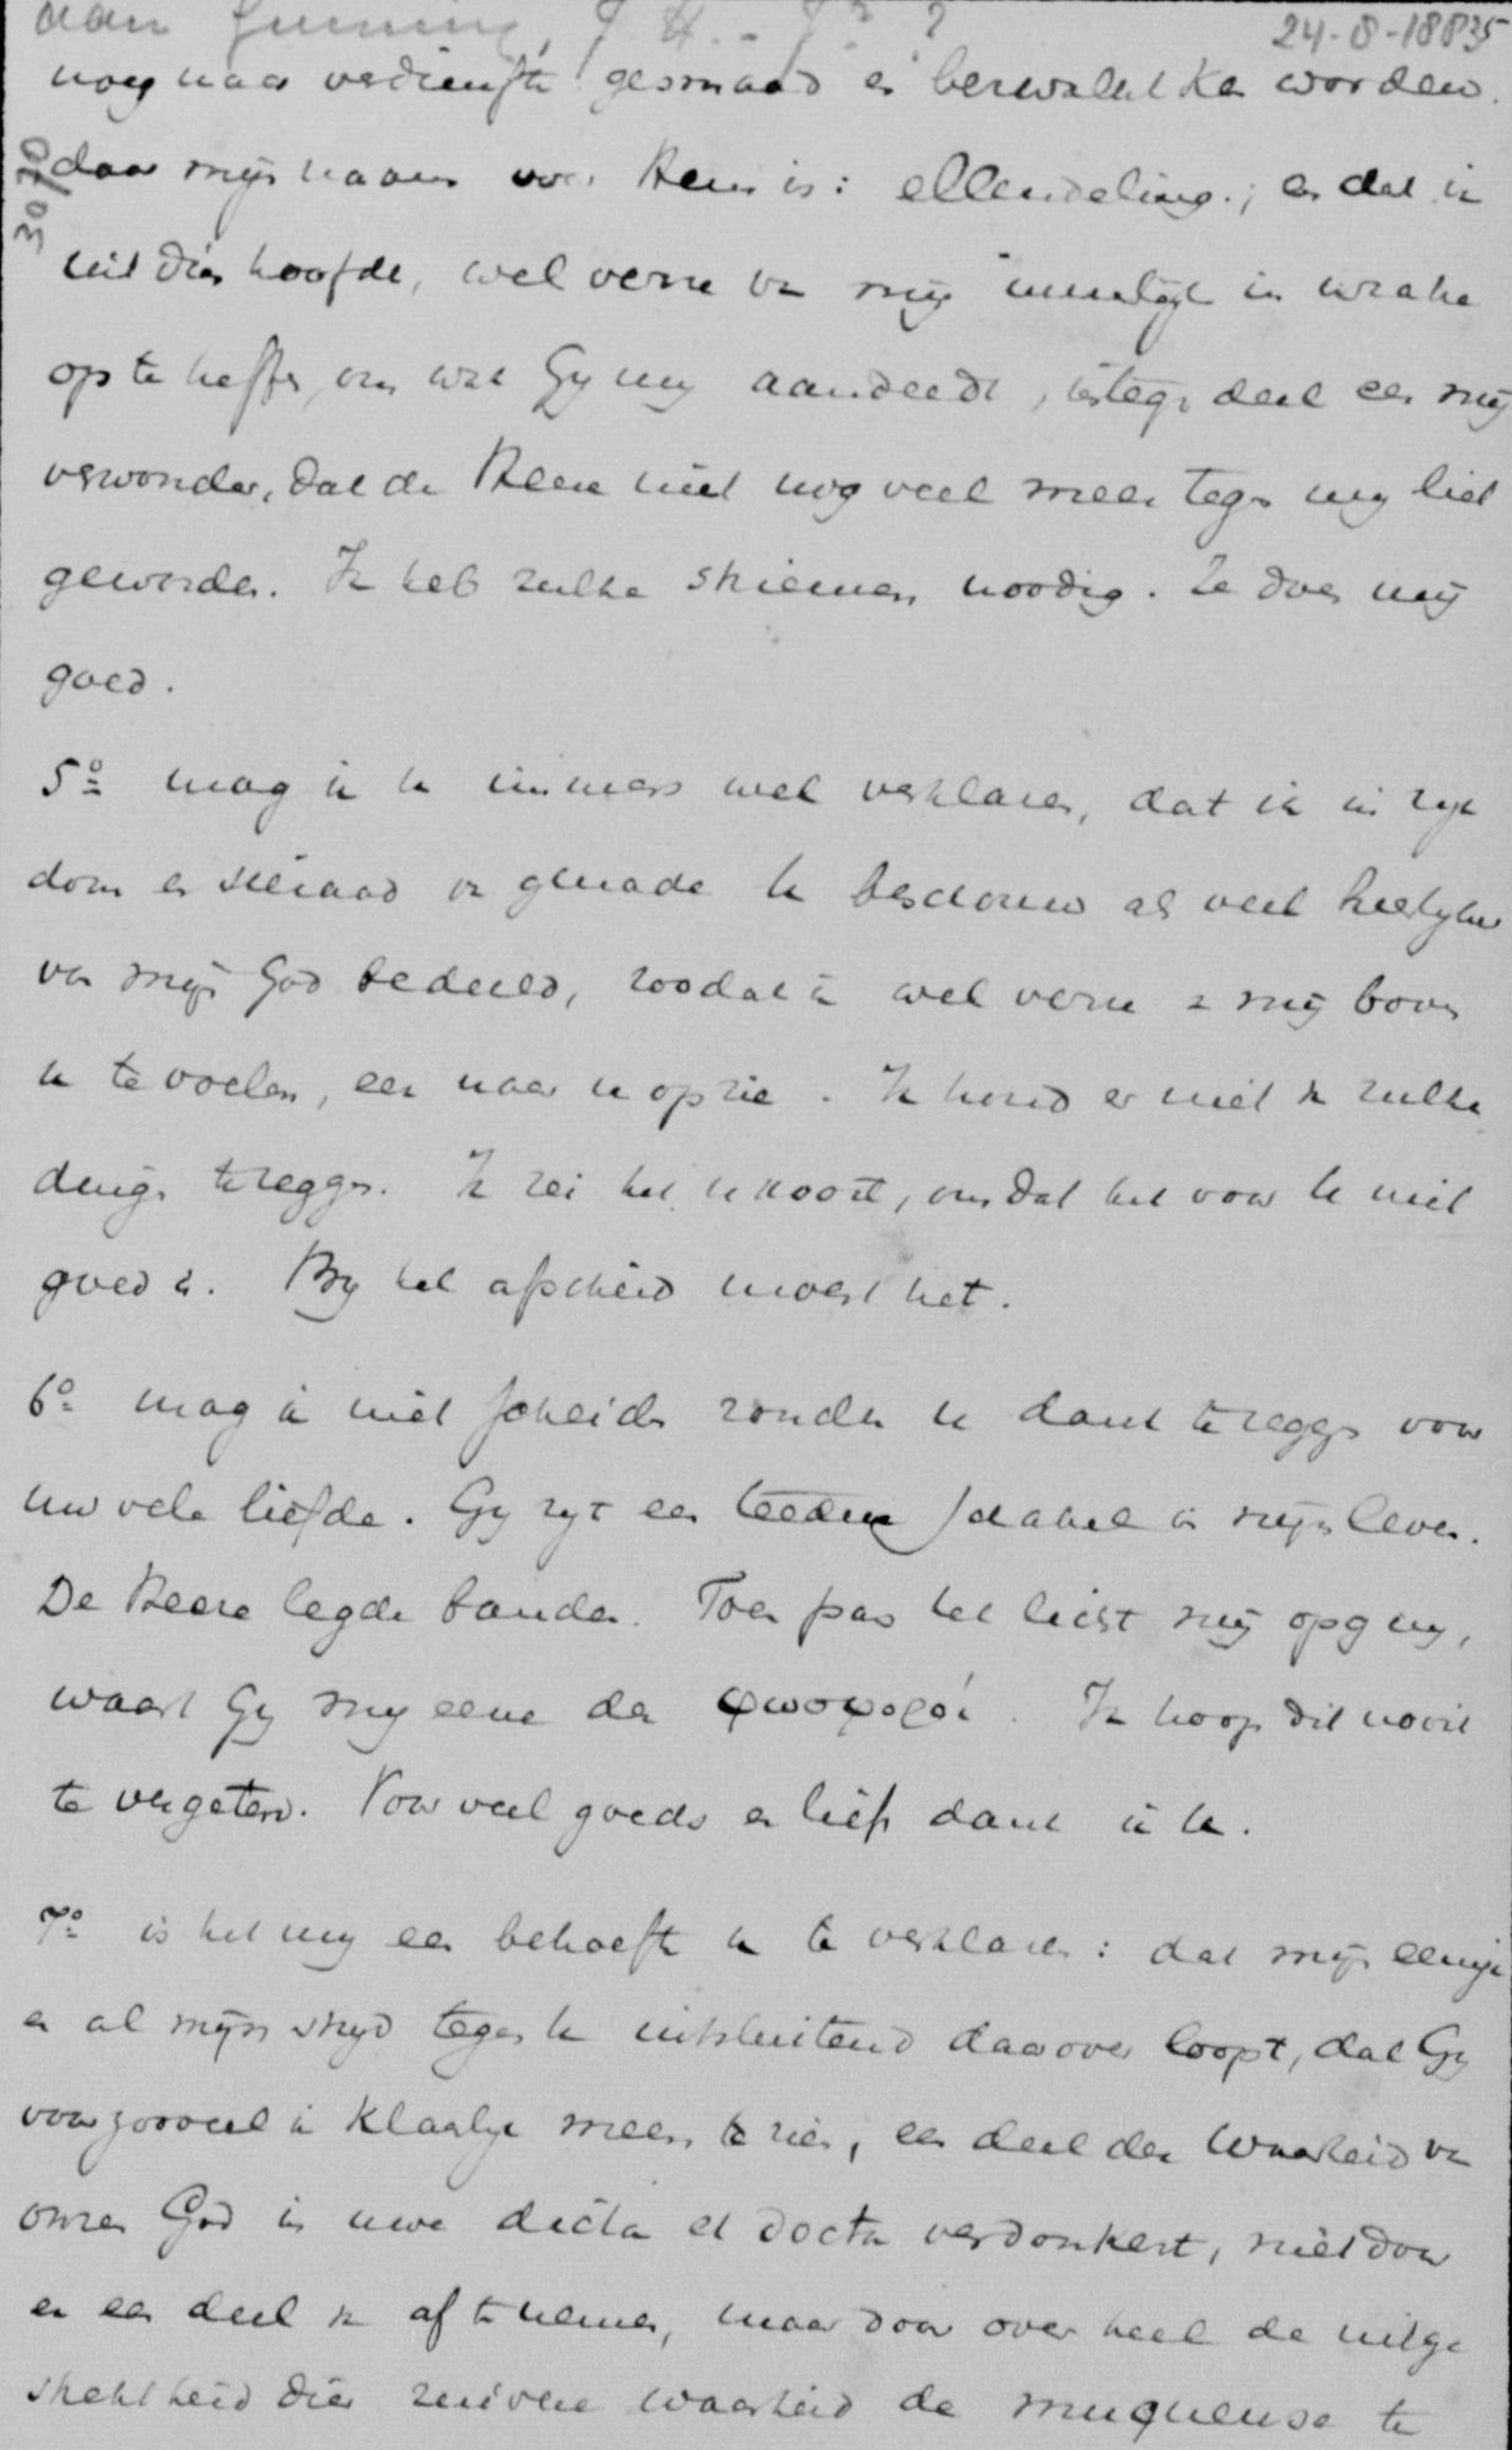 aan Gunning, J. H. - Jr ?
24-8-1885
30/70
nog naar verdienste gesmaad en berwalkt kan worden.
daar mijn naam voor Hem is: ellendeling.; en dat ik
uit dien hoofde, wel verre van mij immetige in wrake
op te heffen, om wat Gy my aandeedt, integendeel er mij
verwonder, dat de Heere niet nog veel meer tegen my liet
geworden. Ik heb zulke striemen noodig. Ze doen mij
goed.
5º mag ik u immers wel verklaren, dat ik in rijk
dom en sieraad van genade u beschouw als veel heerlyker
van mijn God bedeeld, zoodat ik wel verre van mij boven
u te voelen, eer naar u opzie. Ik houd er niet van zulke
dingen te zeggen. Ik zei het u nooit, omdat het voor u niet
goed is. By het afscheid moest het.
6º mag ik niet scheiden zonder u dank te zeggen voor
uw vele liefde. Gy zyt een schakel in mijn leven.
De Heere legde banden. Toen pas het licht mij opging,
waart Gy my eene der φωσφοροί. Ik hoop dit nooit
te vergeten. Voor veel goeds en liefs dank ik u.
7º is het my een behoefte u te verklaren: dat mijn eenige
en al mijn stryd tegen u uitsluitend daarover loopt, dat Gy
voor zooveel ik klaarlyk meen te zien, een deel der waarheid van
onzen God in uwe dicta et docta verdonkert, niet door
er een deel van af te nemen, maar door over heel de uitge
strektheid dier zuivere waarheid de muqueuse te